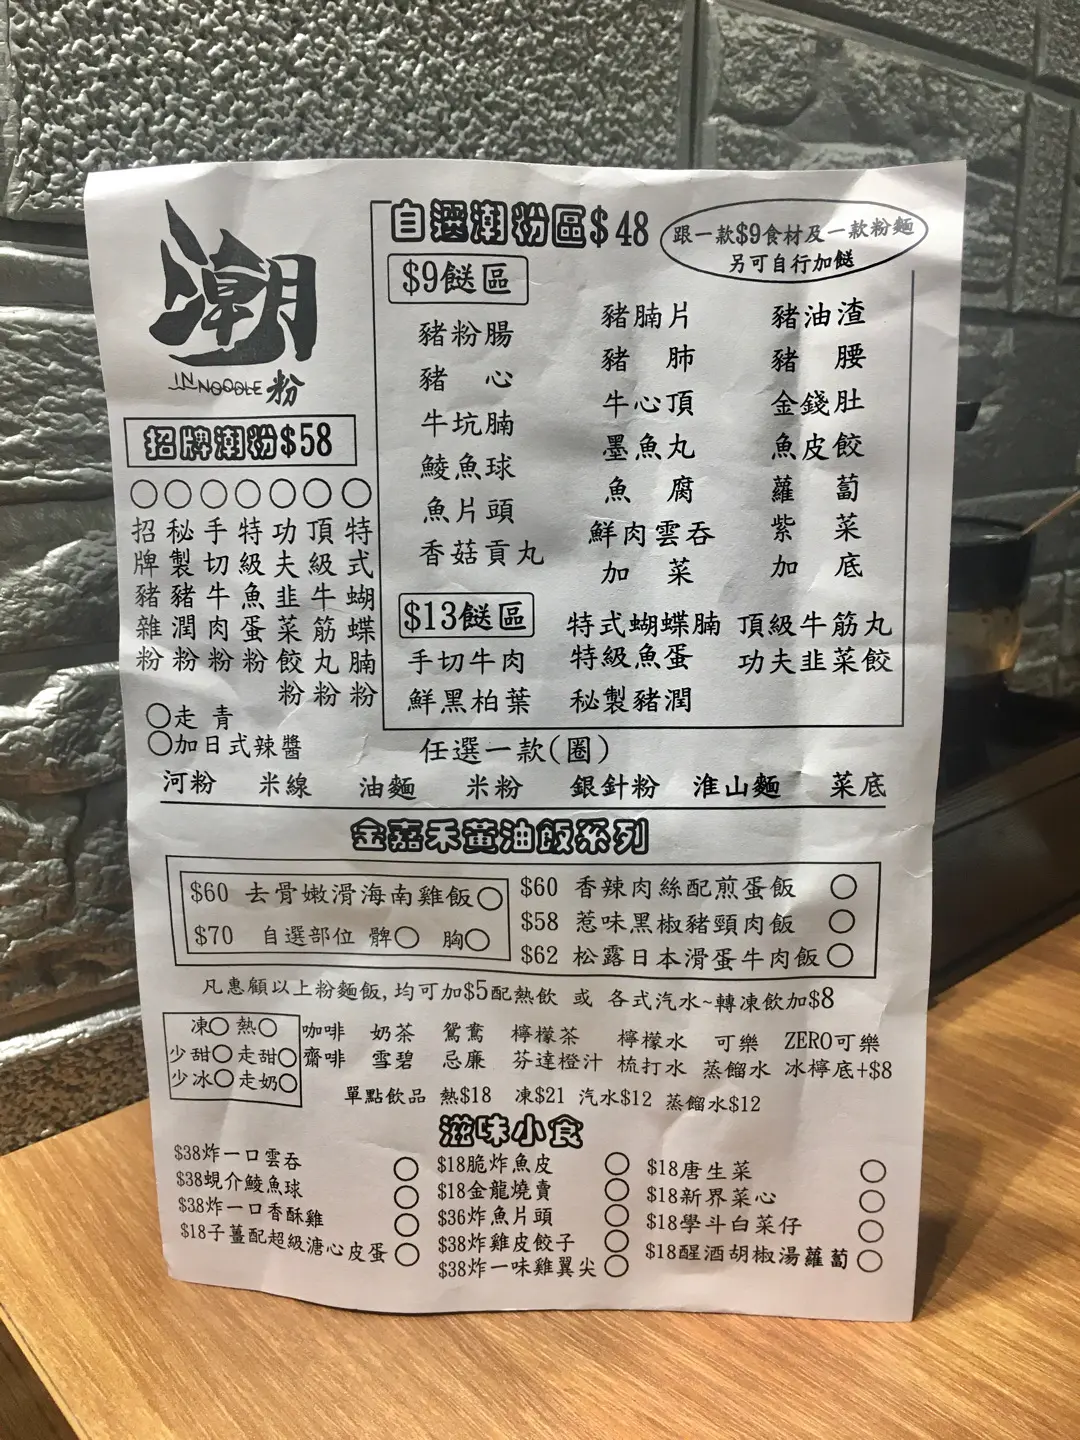 潮
IN NOODLE 粉
招牌潮粉$58
招牌豬雜粉
秘製豬潤粉
手切牛肉粉
特級魚蛋粉
功夫韭菜餃粉
頂級牛筋丸粉
特式蝴蝶腩粉
走青
加日式辣醬
自選潮粉區$48
跟一款$9食材及一款粉麵
另可自行加餸
$9餸區
豬粉腸 豬腩片 豬油渣
豬心 豬肺 豬腰
牛坑腩 牛心頂 金錢肚
鯪魚球 墨魚丸 魚皮餃
魚片頭 魚腐 蘿蔔
香菇貢丸 鮮肉雲吞 紫菜
加菜 加底
$13餸區 特式蝴蝶腩 頂級牛筋丸
手切牛肉 特級魚蛋 功夫韭菜餃
鮮黑柏葉 秘製豬潤
任選一款(圈)
河粉 米線 油麵 米粉 銀針粉 淮山麵 菜底
金嘉禾黃油飯系列
$60 去骨嫩滑海南雞飯
$70 自選部位 髀 胸
$60 香辣肉絲配煎蛋飯
$58 惹味黑椒豬頸肉飯
$62 松露日本滑蛋牛肉飯
凡惠顧以上粉麵飯,均可加$5配熱飲 或 各式汽水~轉凍飲加$8
凍 熱
少甜 走甜
少冰 走奶
咖啡 奶茶 鴛鴦 檸檬茶 檸檬水 可樂 ZERO可樂
齋啡 雪碧 忌廉 芬達橙汁 梳打水 蒸餾水 冰檸底+$8
單點飲品 熱$18 凍$21 汽水$12 蒸餾水$12
滋味小食
$38炸一口雲吞
$38蜆介鯪魚球
$38炸一口香酥雞
$18子薑配超級溏心皮蛋
$18脆炸魚皮
$18金龍燒賣
$36炸魚片頭
$38炸雞皮餃子
$38炸一味雞翼尖
$18唐生菜
$18新界菜心
$18學斗白菜仔
$18醒酒胡椒湯蘿蔔